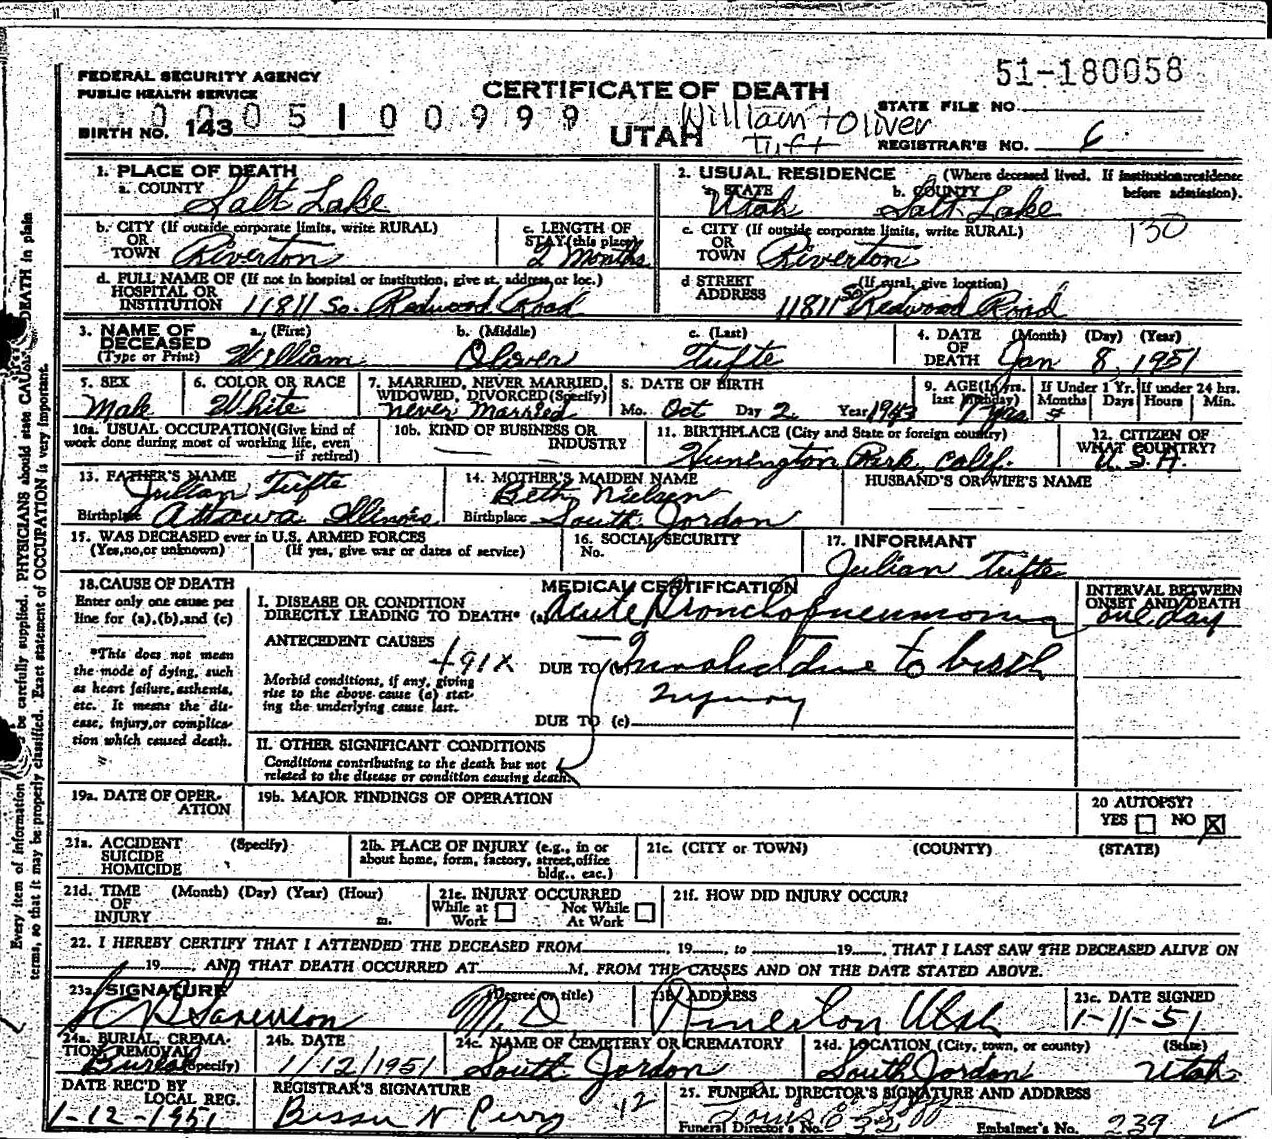 51-180058
FEDERAL SECURITY AGENCY
PUBLIC HEALTH SERVICE
CERTIFICATE OF DEATH
STATE FILE NO.
0005100999
BIRTH NO. 143
UTAH
William Oliver
Tuft
REGISTRAR'S NO. 6
1. PLACE OF DEATH
a. COUNTY Salt Lake
2. USUAL RESIDENCE (Where deceased lived. If institution: residence before admission).
a. STATE Utah b. COUNTY Salt Lake
b. CITY (If outside corporate limits, write RURAL)
OR
TOWN Riverton
c. LENGTH OF
STAY (this place)
2 Months
c. CITY (If outside corporate limits, write RURAL)
OR
TOWN Riverton
130
d. FULL NAME OF (If not in hospital or institution, give st. address or loc.)
HOSPITAL OR
INSTITUTION 11811 So. Redwood Road
d STREET (If rural, give location)
ADDRESS 11811 So Redwood Road
3. NAME OF
DECEASED
(Type or Print)
a. (First) William
b. (Middle) Oliver
c. (Last) Tufte
4. DATE (Month) (Day) (Year)
OF
DEATH Jan 8, 1951
5. SEX
Male
6. COLOR OR RACE
White
7. MARRIED, NEVER MARRIED,
WIDOWED, DIVORCED (Specify)
never married
8. DATE OF BIRTH
Mo. Oct Day 2 Year 1943
9. AGE (In yrs.
last birthday)
7 yrs
If Under 1 Yr.
Months Days
If under 24 hrs.
Hours Min.
10a. USUAL OCCUPATION (Give kind of
work done during most of working life, even
if retired)
10b. KIND OF BUSINESS OR
INDUSTRY
11. BIRTHPLACE (City and State or foreign country)
Hunington Park, Calif.
12. CITIZEN OF
WHAT COUNTRY?
U.S.A.
13. FATHER'S NAME
Julian Tufte
Birthplace Attawa Illinois
14. MOTHER'S MAIDEN NAME
Beth Nielsen
Birthplace South Jordon
HUSBAND'S OR WIFE'S NAME
15. WAS DECEASED ever in U.S. ARMED FORCES
(Yes, no, or unknown) (If yes, give war or dates of service)
16. SOCIAL SECURITY
No.
17. INFORMANT
Julian Tufte
18. CAUSE OF DEATH
Enter only one cause per
line for (a), (b), and (c)
*This does not mean
the mode of dying, such
as heart failure, asthenia,
etc. It means the dis-
ease, injury, or complica-
tion which caused death.
MEDICAL CERTIFICATION
I. DISEASE OR CONDITION
DIRECTLY LEADING TO DEATH* (a) Acute Bronchopneumonia
INTERVAL BETWEEN
ONSET AND DEATH
one day
ANTECEDENT CAUSES
491X
Morbid conditions, if any, giving
rise to the above cause (a) stat-
ing the underlying cause last.
DUE TO (b) Invalid due to birth
injury
DUE TO (c)
II. OTHER SIGNIFICANT CONDITIONS
Conditions contributing to the death but not
related to the disease or condition causing death.
19a. DATE OF OPER-
ATION
19b. MAJOR FINDINGS OF OPERATION
20 AUTOPSY?
YES NO X
21a. ACCIDENT (Specify)
SUICIDE
HOMICIDE
21b. PLACE OF INJURY (e.g., in or
about home, form, factory, street, office
bldg., etc.)
21c. (CITY or TOWN) (COUNTY) (STATE)
21d. TIME (Month) (Day) (Year) (Hour)
OF
INJURY m.
21e. INJURY OCCURRED
While at
Work
Not While
At Work
21f. HOW DID INJURY OCCUR?
22. I HEREBY CERTIFY THAT I ATTENDED THE DECEASED FROM , 19 , to 19 , THAT I LAST SAW THE DECEASED ALIVE ON
19 , AND THAT DEATH OCCURRED AT M, FROM THE CAUSES AND ON THE DATE STATED ABOVE.
23a. SIGNATURE (Degree or title)
Sorenson M.D.
23B ADDRESS
Riverton Utah
23c. DATE SIGNED
1-11-51
24a. BURIAL, CREMA-
TION, REMOVAL
(Specify) Burial
24b. DATE
1/12/1951
24c. NAME OF CEMETERY OR CREMATORY
South Jordon
24d. LOCATION (City, town, or county) (State)
South Jordon Utah
DATE REC'D BY
LOCAL REG.
1-12-1951
REGISTRAR'S SIGNATURE
N Perry 12
25. FUNERAL DIRECTOR'S SIGNATURE AND ADDRESS
Funeral Director's No. Embalmer's No. 239
Every item of information be carefully supplied. PHYSICIANS should state CAU DEATH in plain
terms, so that it may be properly classified. Exact statement of OCCUPATION is very important.